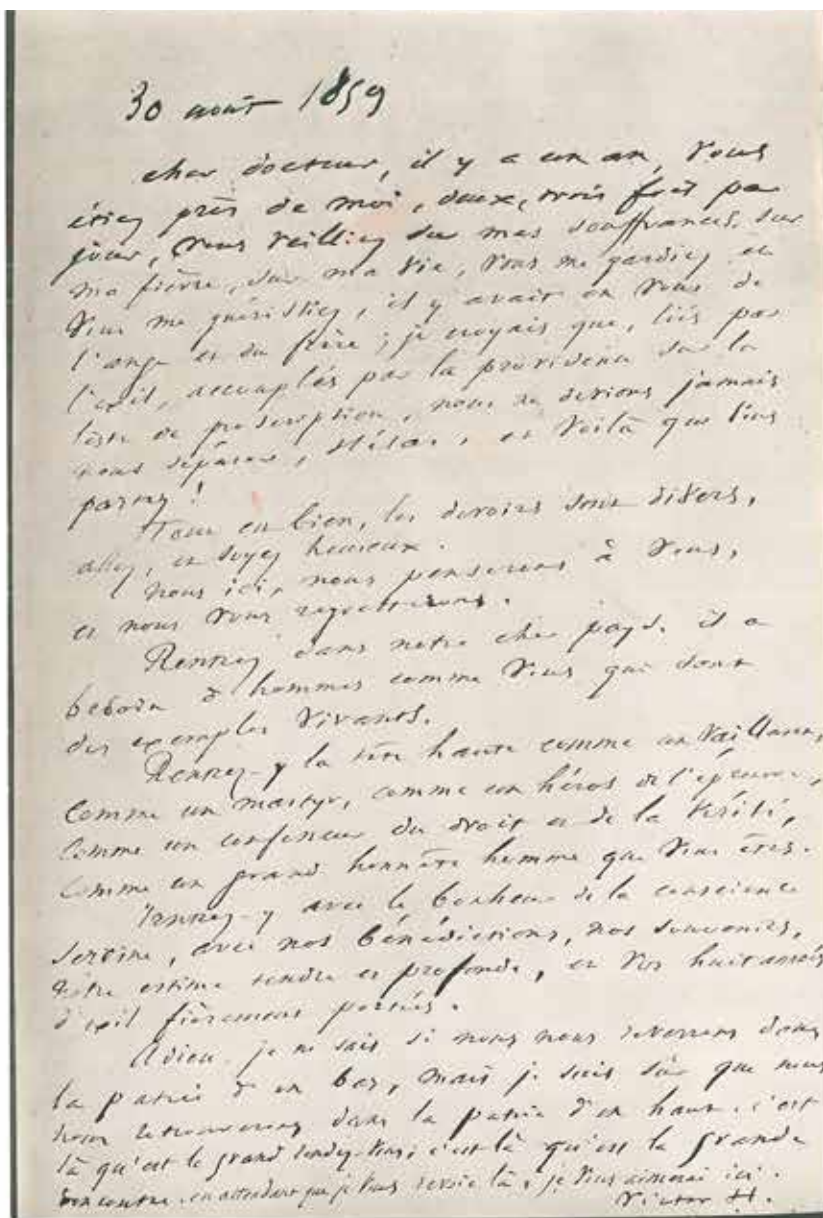 30 août 1859
cher docteur, il y a un an, vous
étiez près de moi, deux, trois fois par
jour, vous veilliez sur mes souffrances, sur
ma fièvre, sur ma vie, vous me gardiez et
vous me guérissiez, il y avait en vous de
l'ange et du frère ; je croyais que, liés par
l'exil, accouplés par la providence sur la
liste de proscription, nous ne devions jamais
nous séparer, hélas, et voilà que vous
partez !
Tout est bien, les devoirs sont divers,
allez, et soyez heureux.
Nous ici, nous penserons à vous,
et nous vous regretterons.
Rentrez dans notre cher pays. il a
besoin d'hommes comme vous qui sont
des exemples vivants.
Rentrez-y la tête haute comme un vaillant,
comme un martyr, comme un héros de l'épreuve,
comme un confesseur du droit et de la vérité,
comme un grand honnête homme que vous êtes.
Rentrez-y avec le bonheur de la conscience
sereine, avec nos bénédictions, nos souvenirs,
notre estime tendre et profonde, et vos huit années
d'exil fièrement portées.
Adieu. je ne sais si nous nous reverrons dans
la patrie d'en bas, mais je suis sûr que nous
nous retrouverons dans la patrie d'en haut. c'est
là qu'est le grand rendez-vous, c'est là qu'est la grande
rencontre. en attendant que je vous revoie là, je vous aimerai ici.
Victor H.